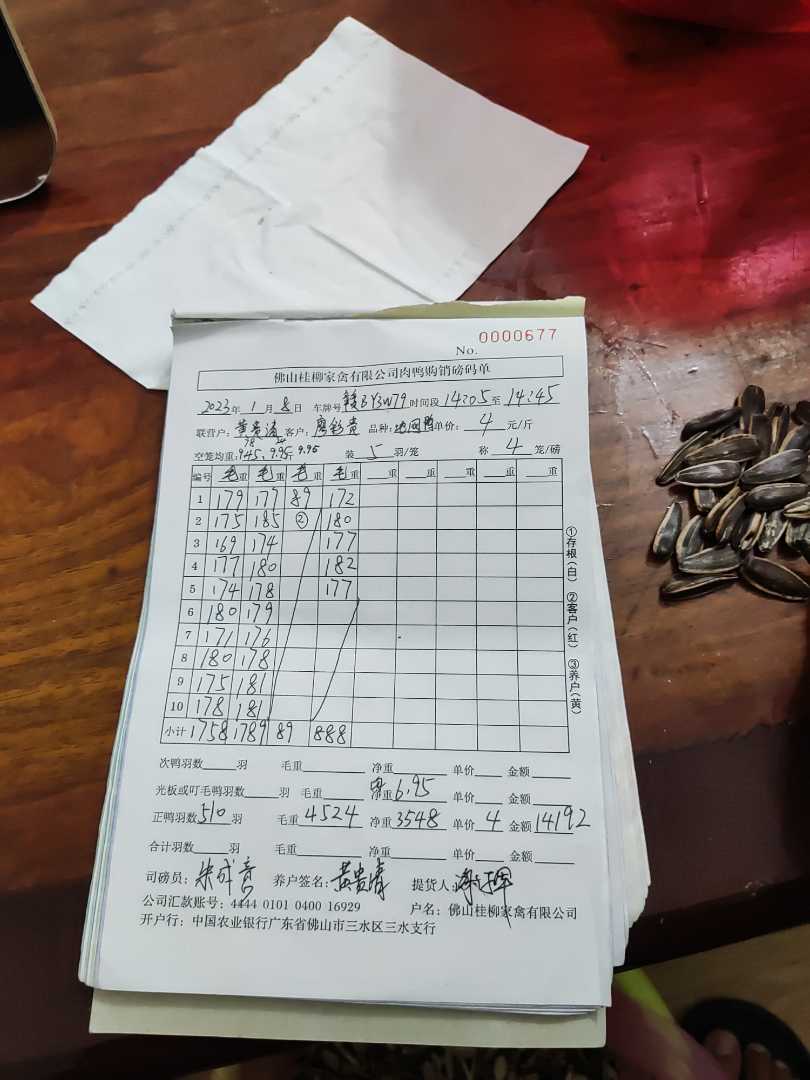 No. 0000677
佛山桂柳家禽有限公司肉鸭购销磅码单
2023年 1月 8日 车牌号 BY3W79 时间段 14:05 至 14:45
联营户: 黄贵清 客户: 廖彩贵 品种: 单价: 4 元/斤
空笼均重: 9.45, 9.95, 9.95 装 5 羽/笼 称 4 笼/磅
编号 毛重 毛重 毛重 毛重 重 重 重 重 重
1 179 177 89 172
2 175 185 ② 180
3 169 174 177
4 177 180 182
5 174 178 177
6 180 179
7 171 176
8 180 178
9 175 181
10 178 181
小计 1758 1789 89 888
①存根(白) ②客户(红) ③养户(黄)
次鸭羽数 羽 毛重 净重 单价 金额
光板或叮毛鸭羽数 羽 毛重 净重 6.95 单价 金额
正鸭羽数 510 羽 毛重 4524 净重 3548 单价 4 金额 14192
合计羽数 羽 毛重 净重 单价 金额
司磅员: 养户签名: 黄贵清 提货人:
公司汇款账号: 4444 0101 0400 16929 户名: 佛山桂柳家禽有限公司
开户行: 中国农业银行广东省佛山市三水区三水支行